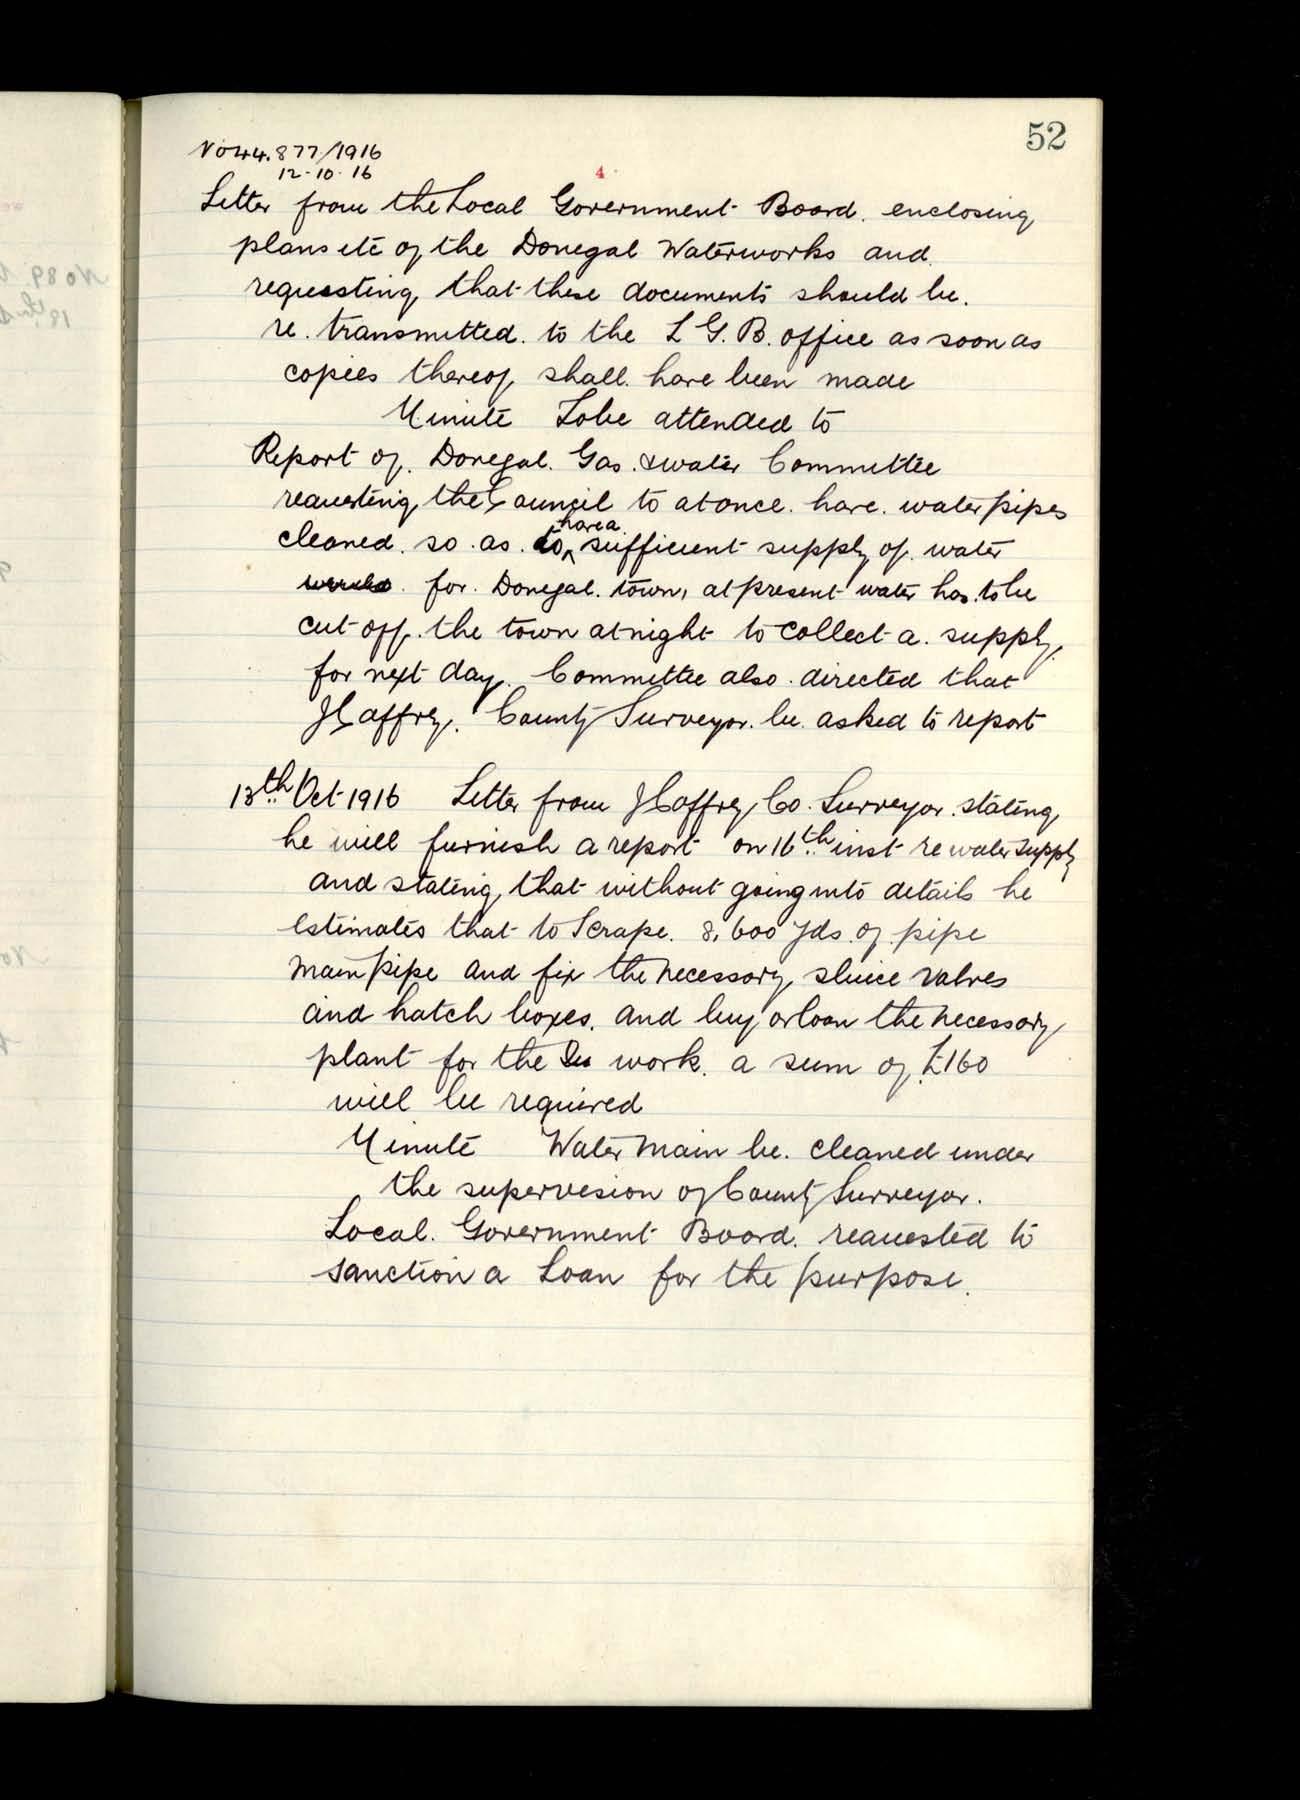 52
No 44.877/1916
12-10-16
4
Letter from the Local Government Board. enclosing
plans etc of the Donegal Waterworks and.
requesting that these documents should be.
re. transmitted. to the L G. B. office as soon as
copies thereof shall. have been made
Minute To be attended to
Report of. Donegal. Gas. & water Committee
requesting the Council to at once. have. water pipes
cleaned. so. as. to have a sufficient supply of. water
for. Donegal. town, at present water has. to be
cut off. the town at night to collect a. supply.
for next day. Committee also. directed that
J Caffrey. County Surveyor. be. asked to report
13th Oct 1916 Letter from J Caffrey Co. Surveyor. stating
he will furnish a report on 16th inst re water supply
and stating that without going into details he
estimates that to Scrape. 8,600 yds. of. pipe
main pipe and fix the necessary sluice valves
and hatch boxes. and buy or loan the necessary
plant for the work. a sum of £160
will be required
Minute Water Main be. cleaned under
the supervesion of County Surveyor.
Local. Government Board. requested to
sanction a Loan for the purpose.